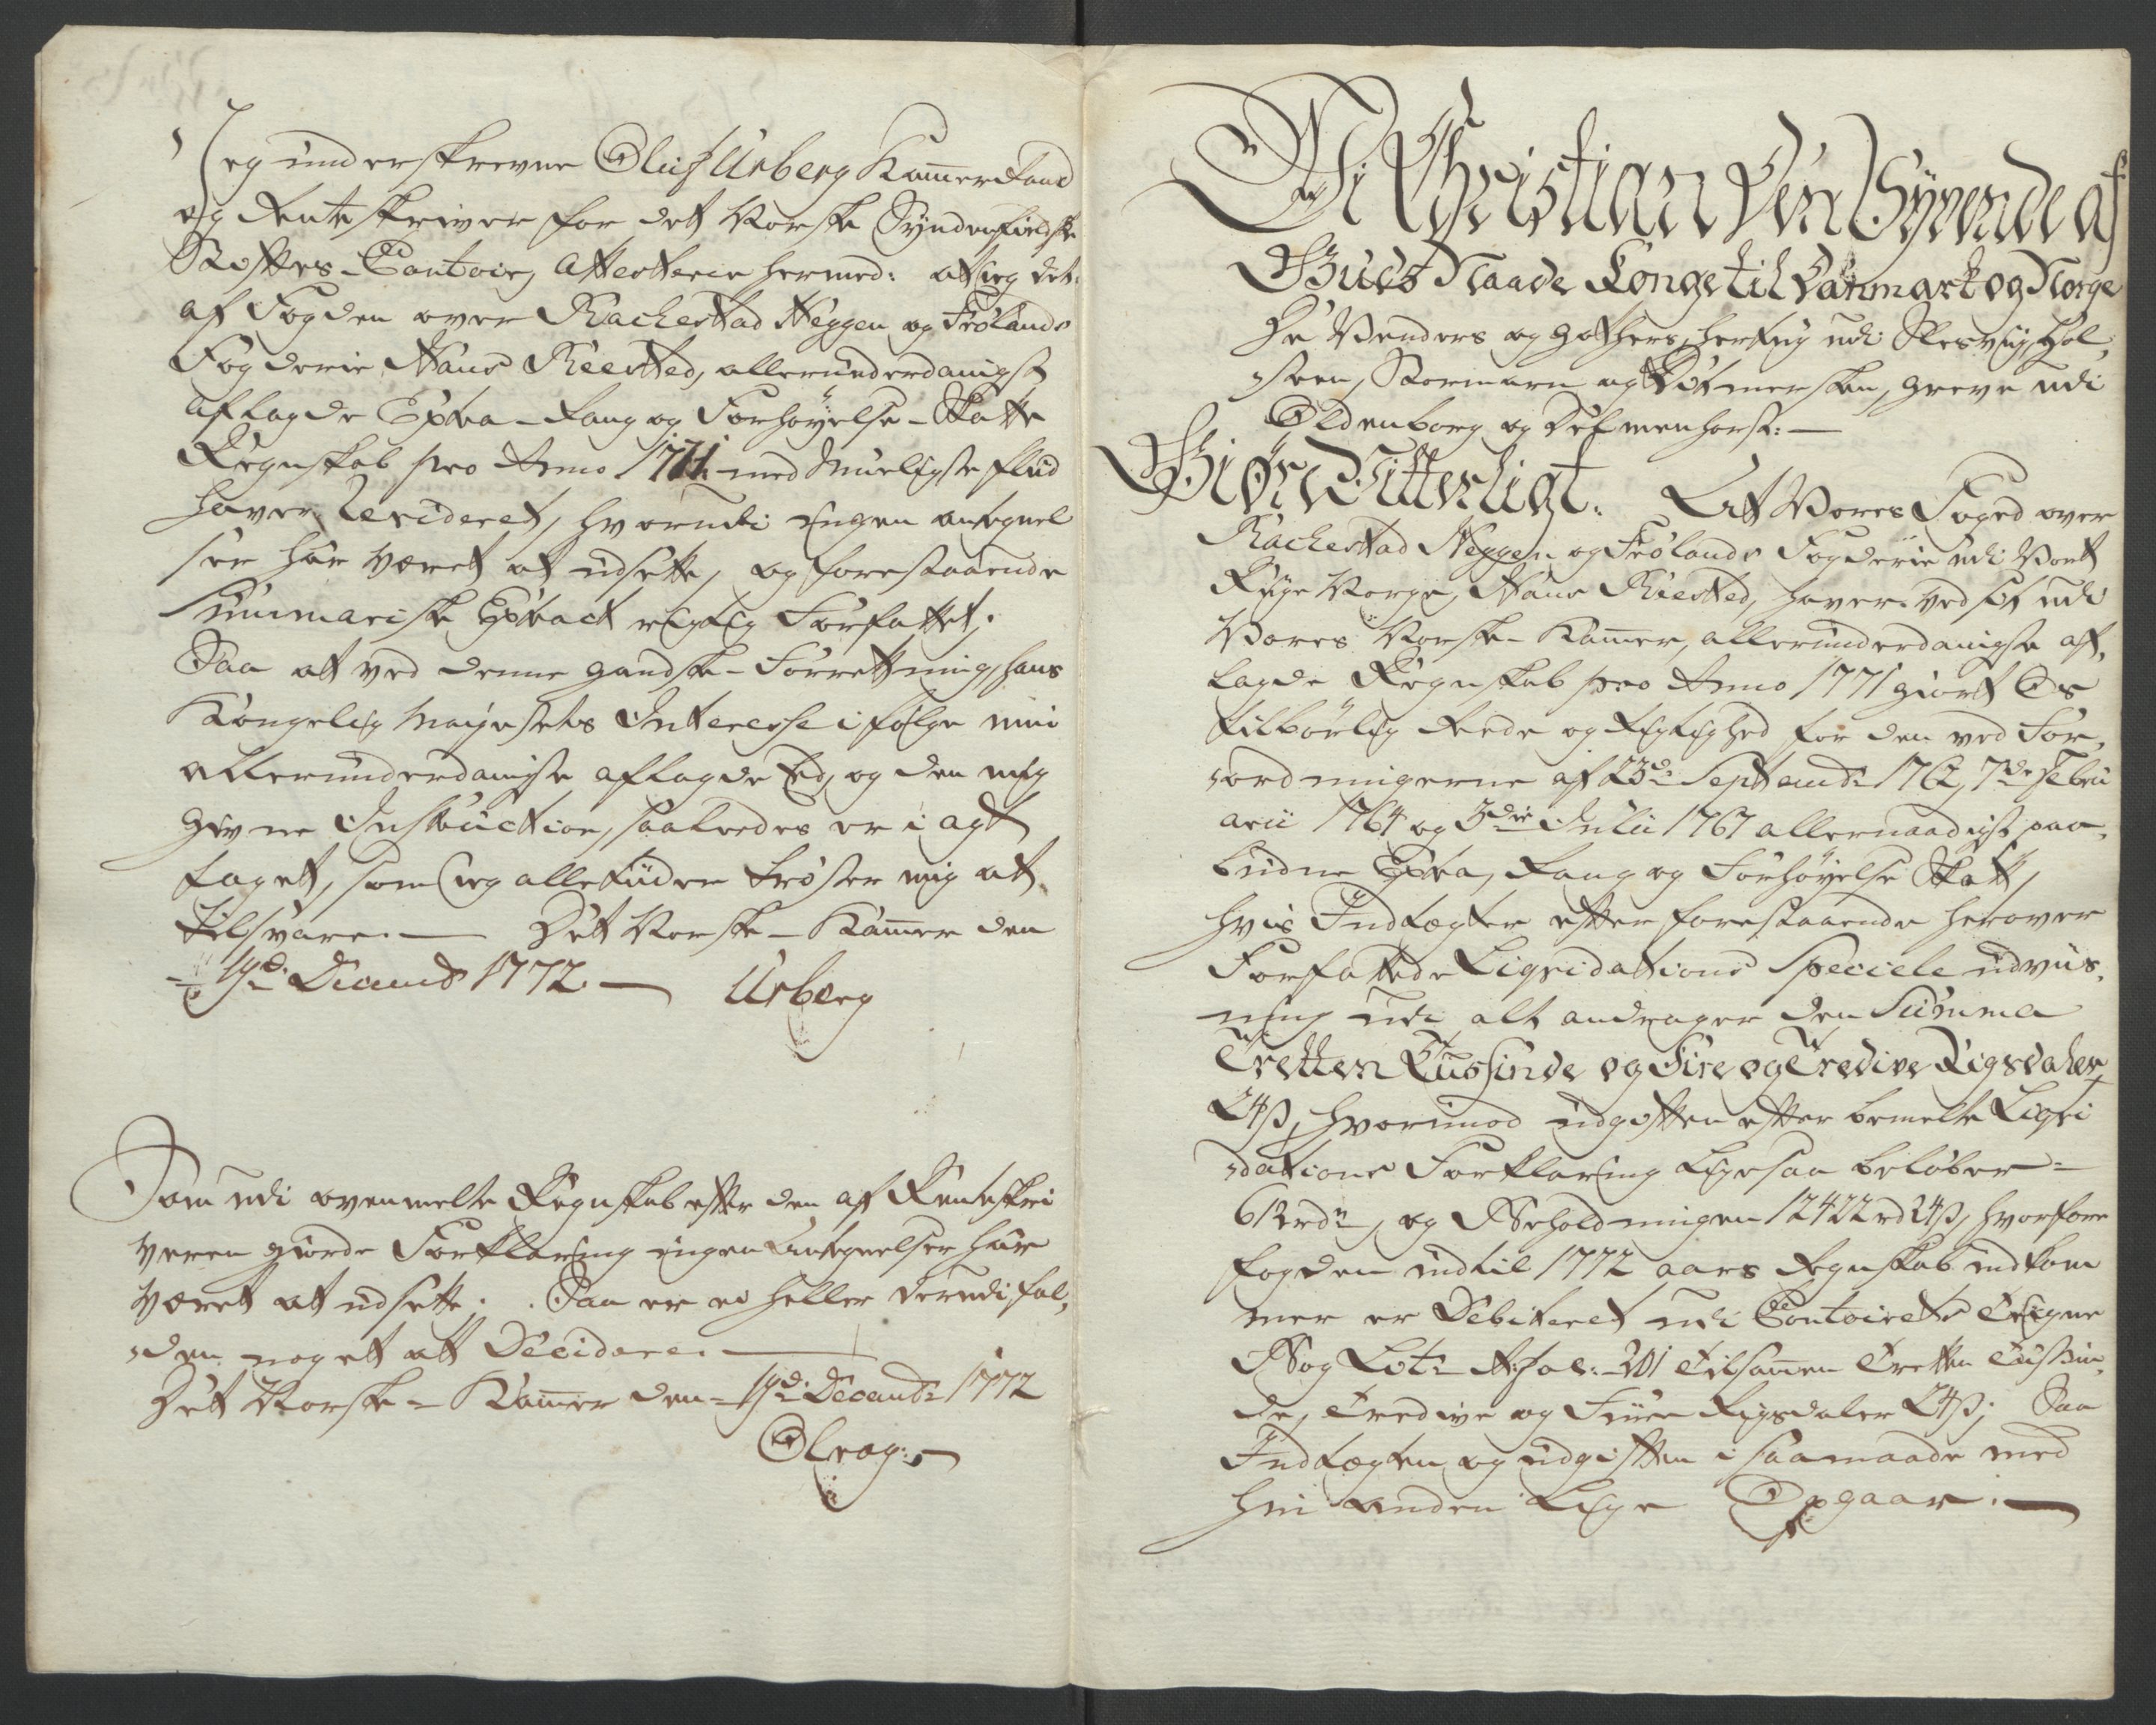 Jeg underskrevne Oluf Urberg Kammerraad
og Renteskriver for det Norske Syndenfieldske
Stifters-Contoir, Attesterer hermed: at ieg det
af Fogden over Rachestad Heggen og Frølands
Fogderie, Hans Riersted, allerunderdanigst
aflagde Extra-Rang og Forhøyelse-Skatte
Regnskab pro Anno 1771 med Mueligste fliid
haver Revideret, hvorudi ingen antegnel
ser har været at udsette, og forestaaende
Summariske Extract rigtig Forfattet;
Saa at ved denne gandske-Forretning, hans
Kongelig Mayestets Interesse i følge min
allerunderdanigste aflagde Eed, og den mig
givne Instruction, saaledes er i agt
taget, som ieg alle tiider trøster mig at
tilsvare. — Det Norske-Kammer den
19d: Decemb 1772. — Urberg
Som udi ovenmelte Regnskab efter den af Renteskri
veren giorde Forklaring ingen Antegnelser har
været at udsette; Saa er ei heller derudi fal,
den noget att Decidere. —
Det Norske-Kammer den 19d: Decemb: 1772
Vi Christian Den Syvende af
Guds Naade Konge til Danmark og Norge
De Venders og Gothers, Hertug udi Slesvig, Hol,
steen, Stormarn og Ditmersken, Greve udi
Oldenborg og Delmenhorst: —
Giør Vitterligt. At Vores Foged over
Rachestad Heggen og Frølands Fogderie udi Vort
Riige Norge, Hans Riersted, haver ved sit udi
Vores Norske-Kammer, allerunderdanigst af,
lagde Regnskab pro Anno 1771 giort Os
tilbørlig Rede og Rigtighed for den ved For,
ordningerne af 23d: Septemb: 1762, 7de Febru
arii 1764 og 3die Julii 1767 allernaadigst paa,
budne Extra, Rang og Forhøyelse Skatt,
hvis Indtægter efter forestaaende herover
Forfattede Liqvidations Speciele udviis,
ning udi alt andrager den Summa
Tretten Tussinde og Fire og Tredive Rigsdaler
24ß, hvorimod udgiften efter bemelte Liqvi
dations Forklaring ligesaa beløber =
612rdr, og Beholdningen 12422rd 24ß, hvorfore
fogden indtil 1772 aars Regnskab indkom
mer er Debiteret udi Contoirets Eigne
Bog Litr: A: fol: 201 tilsammen Tretten Tussin,
de, Tredive og Fiire Rigsdaler 24ß; Saa
Indtægten og udgiften i saamaade med
hin anden lige Opgaar. —